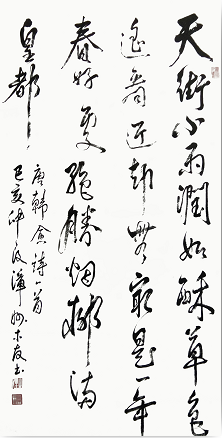 天街小雨潤如酥草色
遥看近却無最是一年
春好處绝勝烟柳滿
皇都
唐韓愈詩一首
己亥仲夏